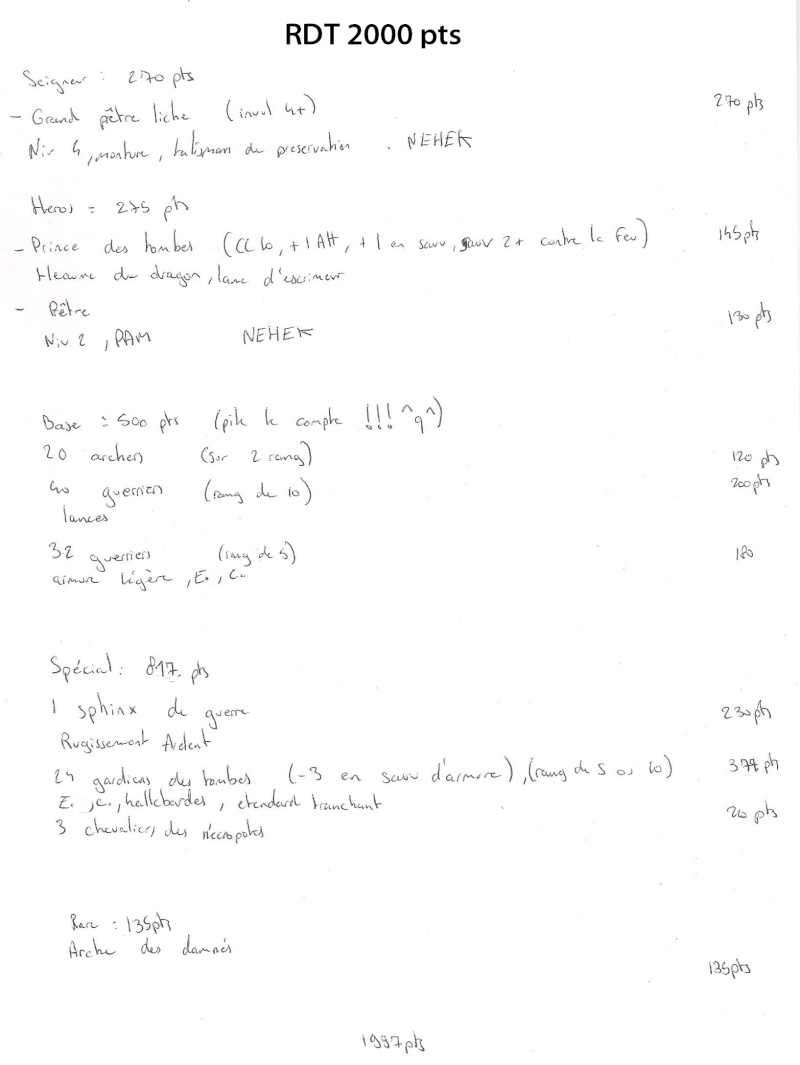 RDT 2000 pts
Seigneur : 270 pts
- Grand prêtre liche (invul 4+) 270 pts
Niv 4, monture, talisman de preservation . NEHEK
Heros = 275 pts
- Prince des tombes (CC 10, +1 Att, +1 en sauv, sauv 2+ contre le feu) 145 pts
Heaume du dragon, lame d'escrimeur
- Prêtre 130 pts
Niv 2, PAM NEHEK
Base = 500 pts (pile le compte !!! ^q^)
20 archers (sur 2 rang) 120 pts
40 guerriers (rang de 10) 200 pts
lances
32 guerriers (rang de 5) 180
armure légère, E., C.
Spécial : 817 pts
1 sphinx de guerre 230 pts
Rugissement Ardent
24 gardiens des tombes (-3 en sauv d'armure), (rang de 5 ou 10) 377 pts
E., C., hallebardes, etendard tranchant
3 chevaliers des nécropoles pts
Rare : 135 pts
Arche des damnés
135 pts
1997 pts